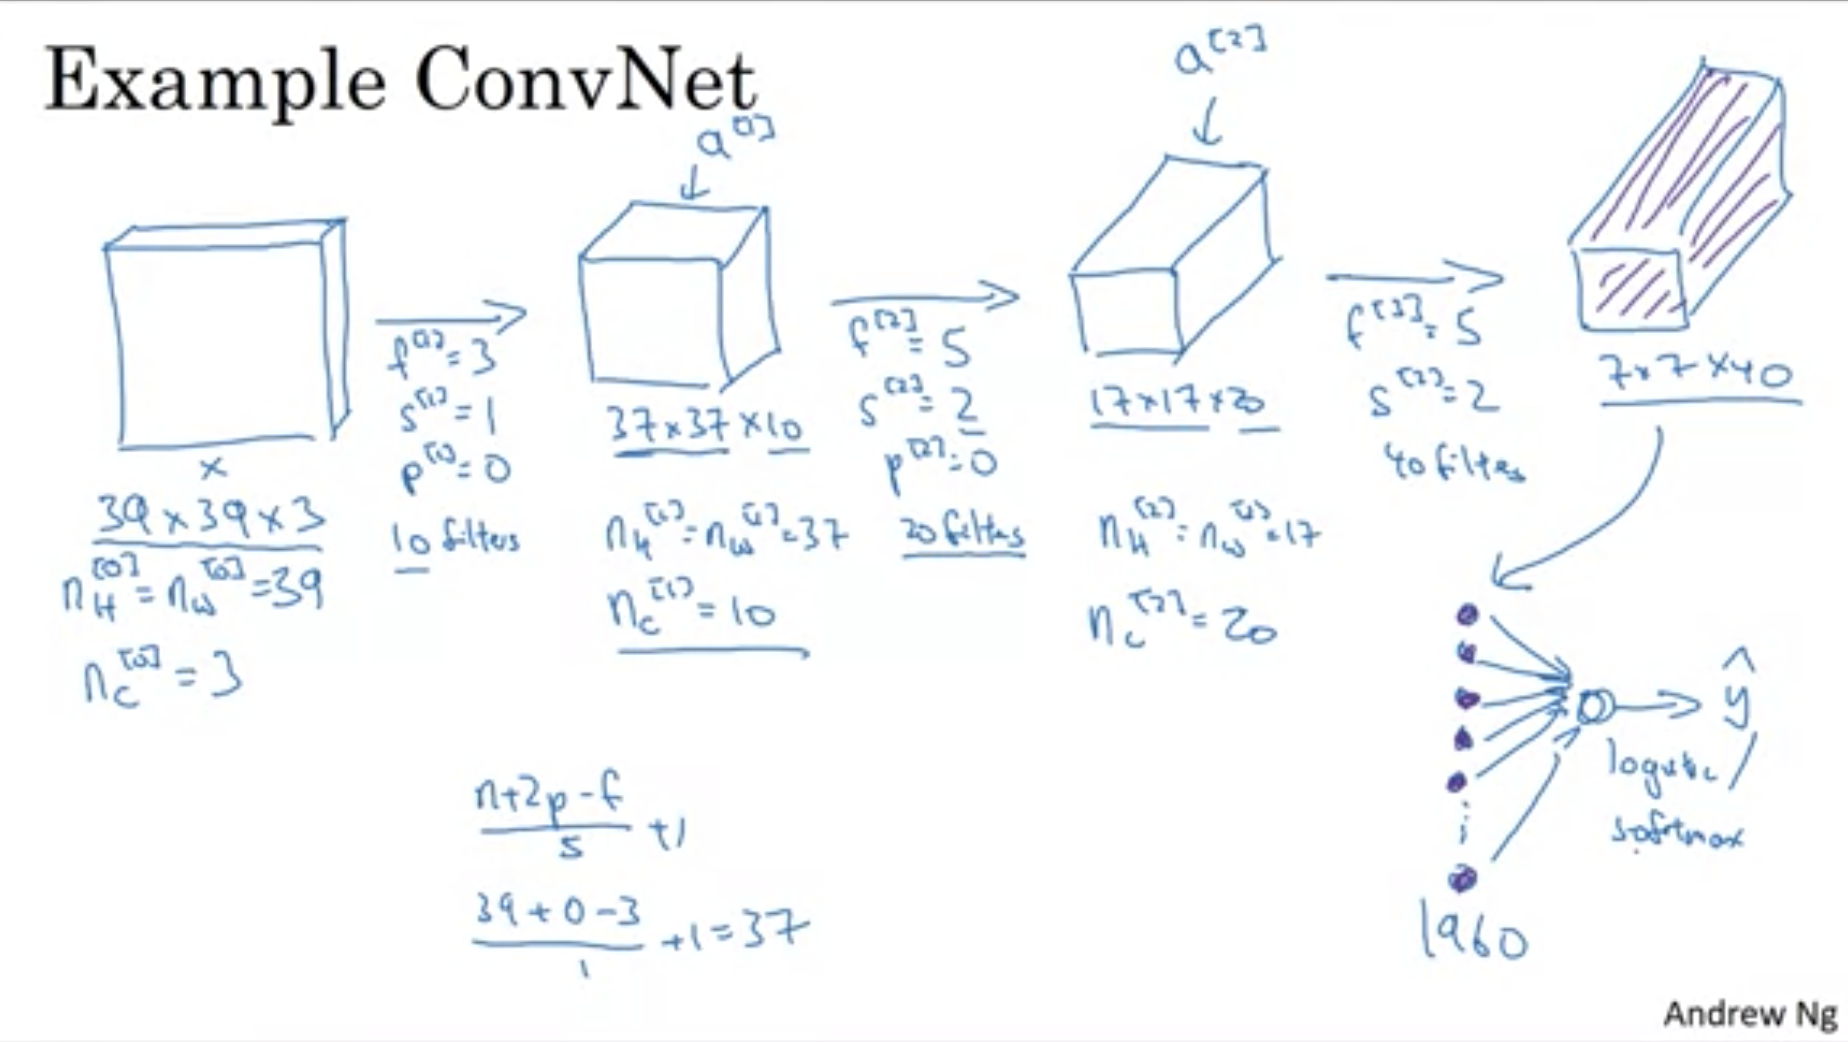 Example ConvNet
a[1]
a[2]
x
39 x 39 x 3
nH[0] = nW[0] = 39
nC[0] = 3
f[1] = 3
s[1] = 1
p[1] = 0
10 filters
37 x 37 x 10
nH[1] = nW[1] = 37
nC[1] = 10
f[2] = 5
s[2] = 2
p[2] = 0
20 filters
17 x 17 x 20
nH[2] = nW[2] = 17
nC[2] = 20
f[3] = 5
s[3] = 2
40 filters
7 x 7 x 40
1960
ŷ
logistic /
softmax
n+2p-f
s
+1
39 + 0 - 3
1
+1 = 37
Andrew Ng